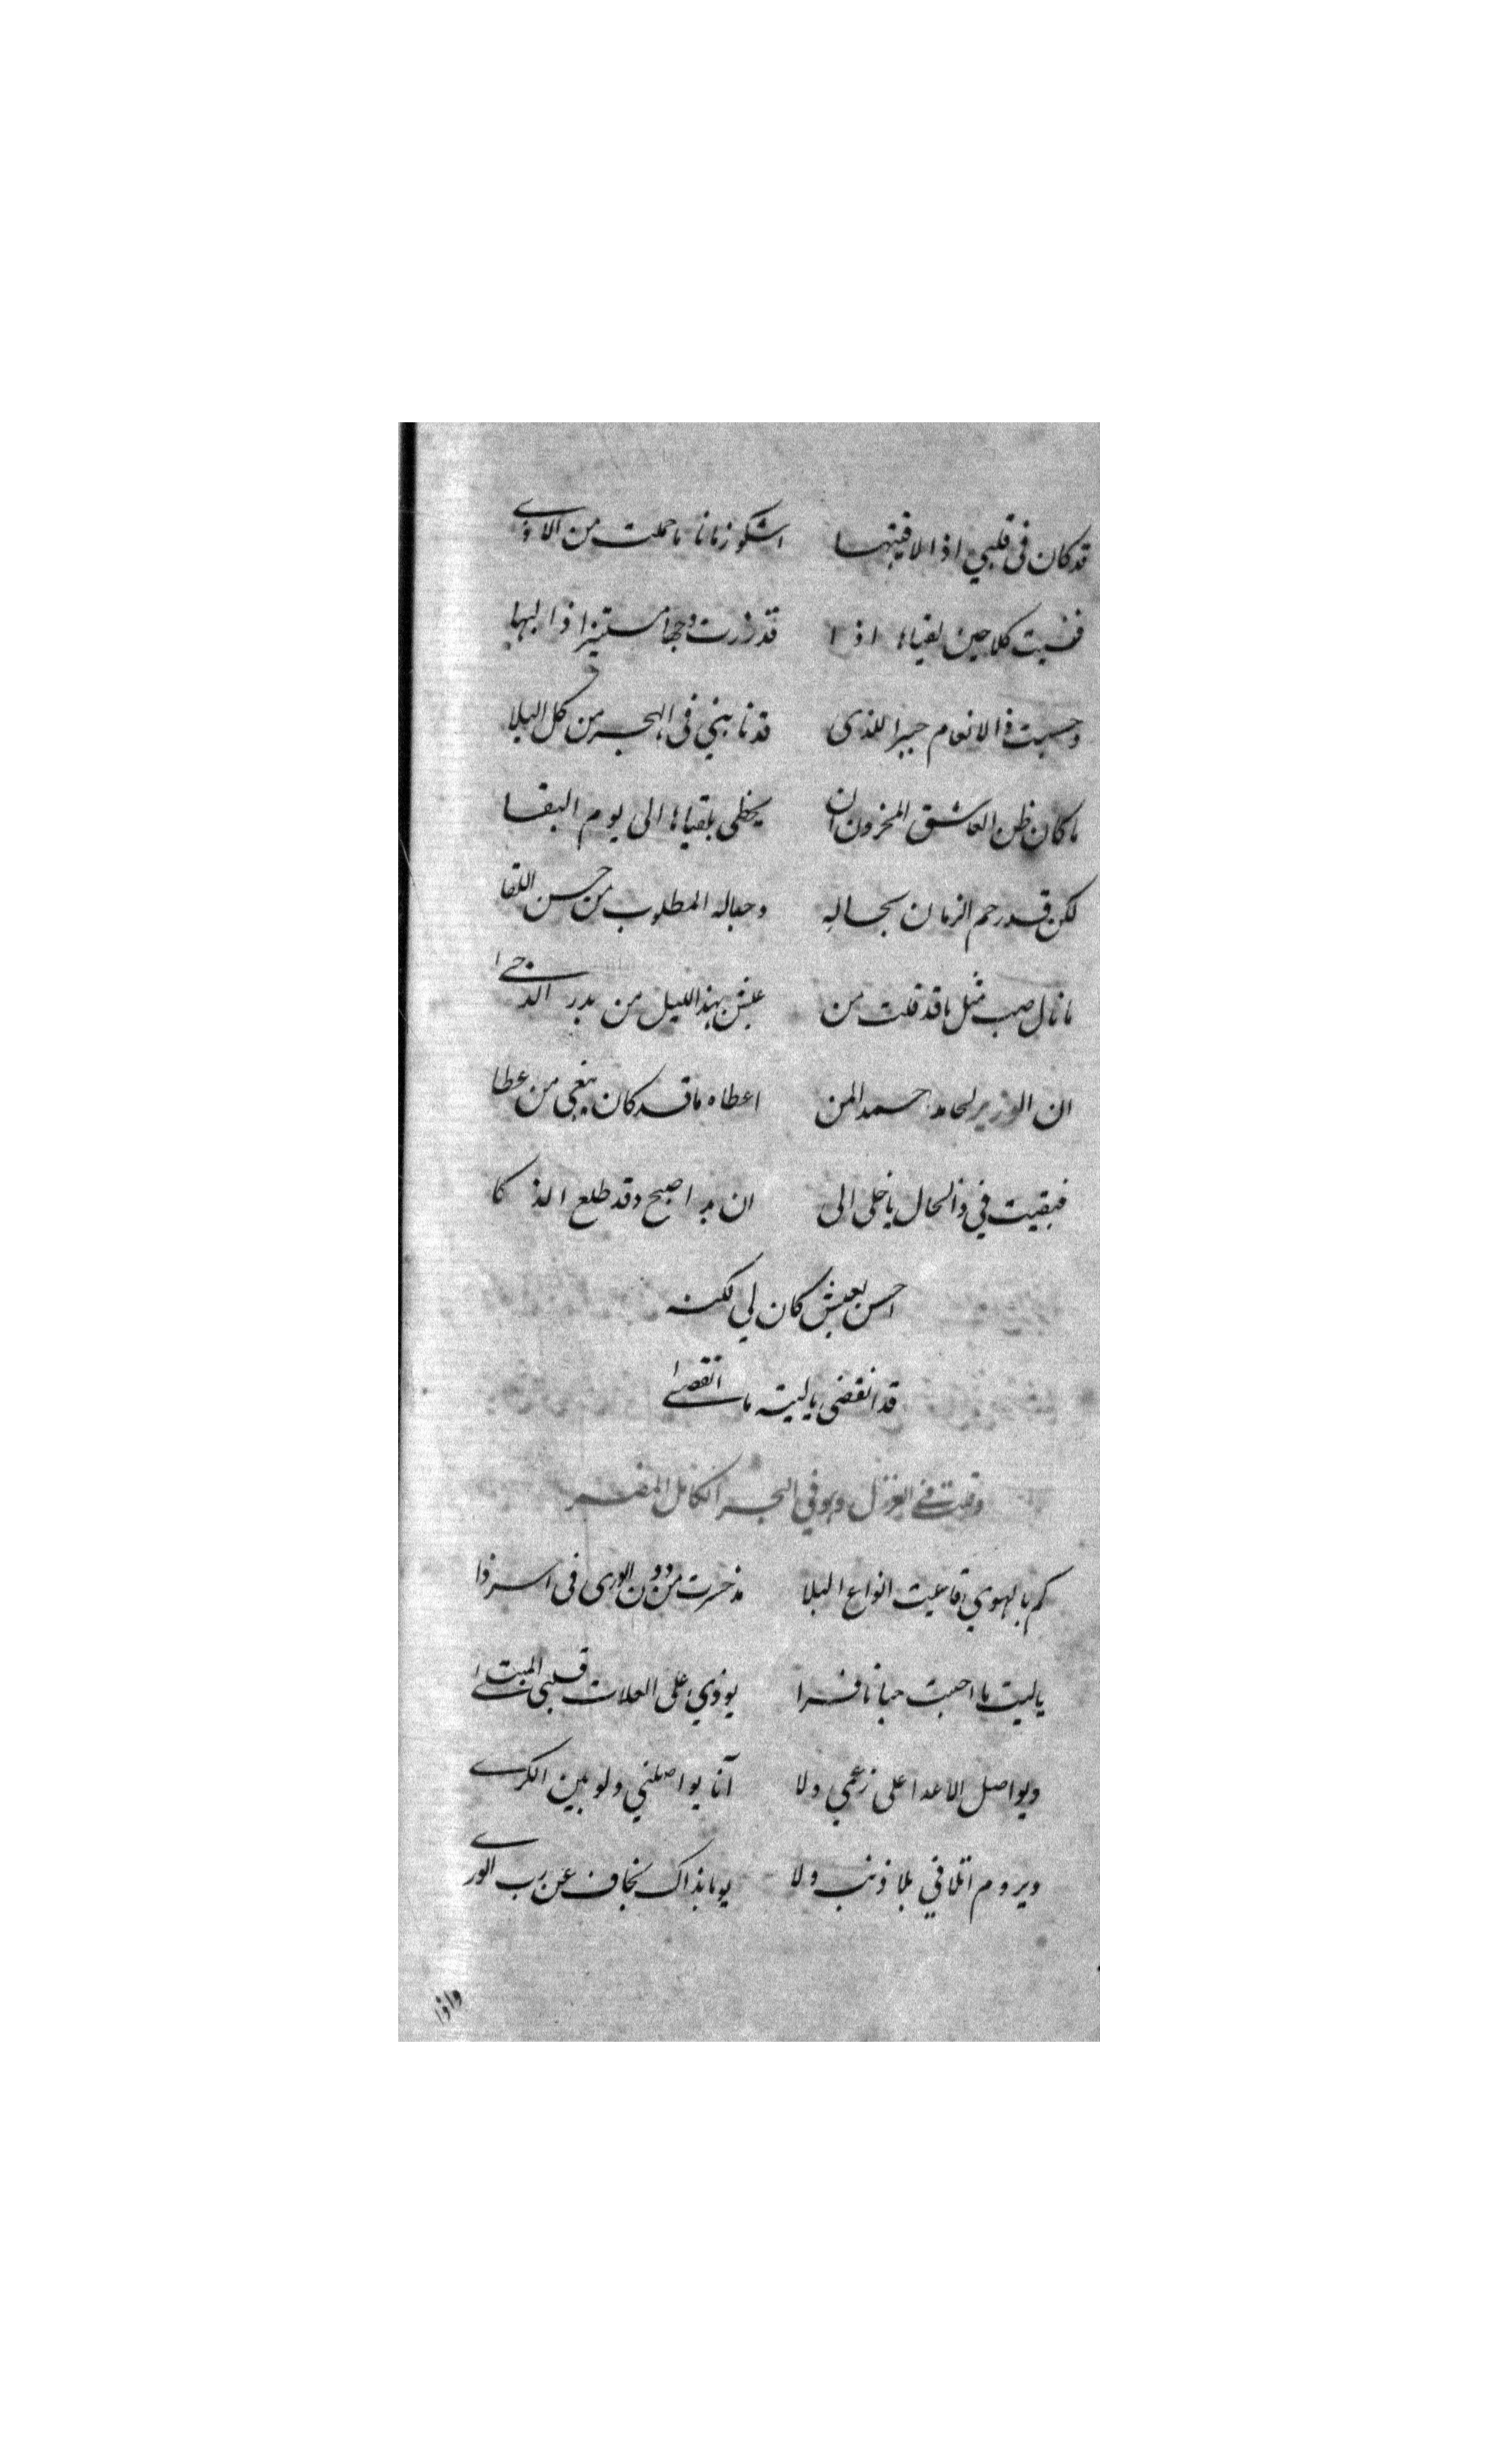 قد كان في قلبي اذا لاقيتها اشكو زمانا ما حملت من الاذى
فنسيت كلا حين لقياها اذا قد زرت وجها مستنيرا ذا البها
وحسبت ذا الانعام جبرا للذى قد نابني فى الهجر من كل البلا
ما كان ظن العاشق المحزون ان يحظى بلقياها الى يوم البقا
لكن قد رحم الزمان بحاله وحباله المطلوب من حسن اللقا
ما نال صب مثل ما قد نلت من عيش بهذا الليل من بدر الدجى
ان الوزير لحامد احمد المن اعطاه ما قد كان يبغي من عطا
فبقيت في ذا الحال يا خلى الى ان بدا صبح وقد طلع الذكا
احسن بعيش كان لي لكنه
قد انقضى يا ليته ما انقضى
وقلت في الغزل وهو في البحر الكامل المضمر
كم بالهوي قاسيت انواع البلا مذ صرت من دون الورى فى اسر ذا
يا ليت ما احببت حبا نافرا يوذي على العلات قلبي المبتلى
ويواصل الاعدا على زعمي ولا آنا يواصلني ولو بين الكرى
ويروم اتلافي بلا ذنب ولا يوما بذاك يخاف عن رب الورى
واذا